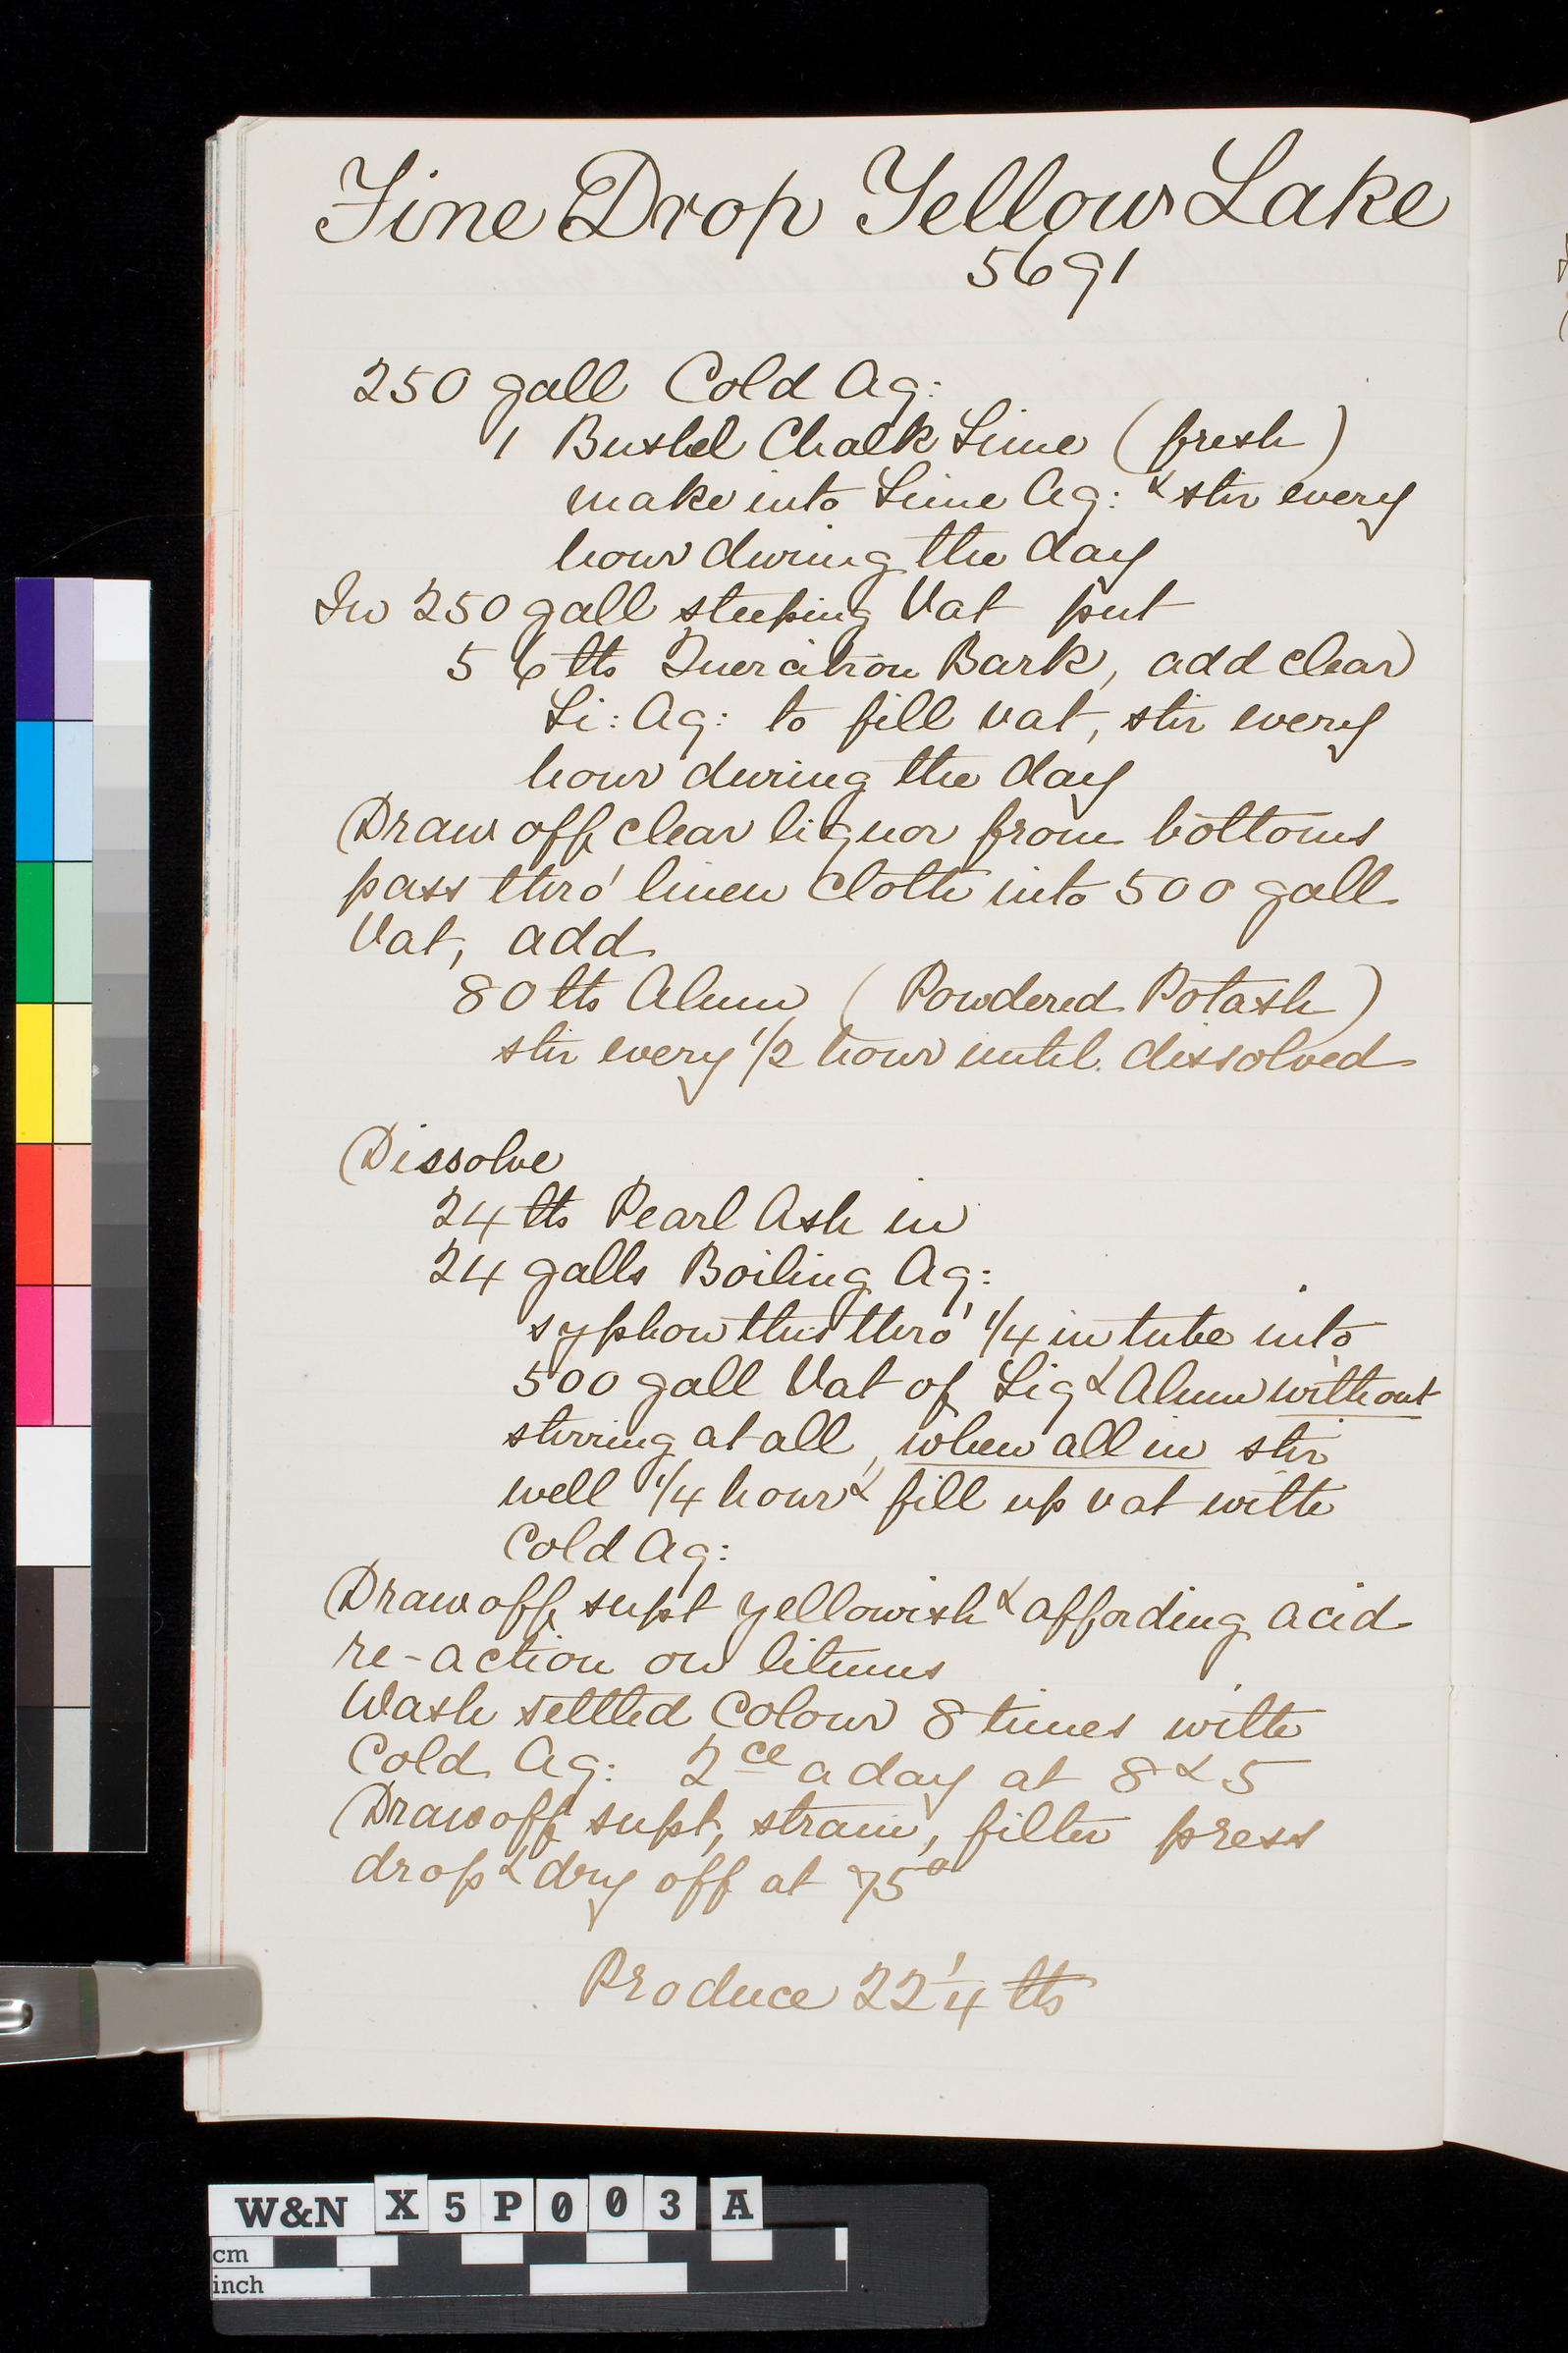 Fine Drop Yellow Lake
5691
250 gall Cold Aq:
1 Bushel Chalk Lime (fresh)
make into Lime Aq: & stir every
hour during the day
In 250 gall steeping Vat put
56 lbs Quercitron Bark, add clear
Li: Aq: to fill vat, stir every
hour during the day
Draw off clear liquor from bottoms
pass thro' linen cloth into 500 gall
Vat, add
80 lbs Alum (Powdered Potash)
stir every 1/2 hour until dissolved
Dissolve
24 lbs Pearl Ash in
24 galls Boiling Aq:
syphon this thro' 1/4 in tube into
500 gall Vat of Liq & Alum without
stirring at all, when all in stir
well 1/4 hour & fill up vat with
Cold Aq:
Draw off supt yellowish & affording acid
re-action on litmus
Wash settled Colour 8 times with
Cold Aq: 2ce a day at 8 & 5
Draw off supt, strain, filter press
drop & dry off at 75°
Produce 22 1/4 lbs
W&N X5P003A
cm
inch